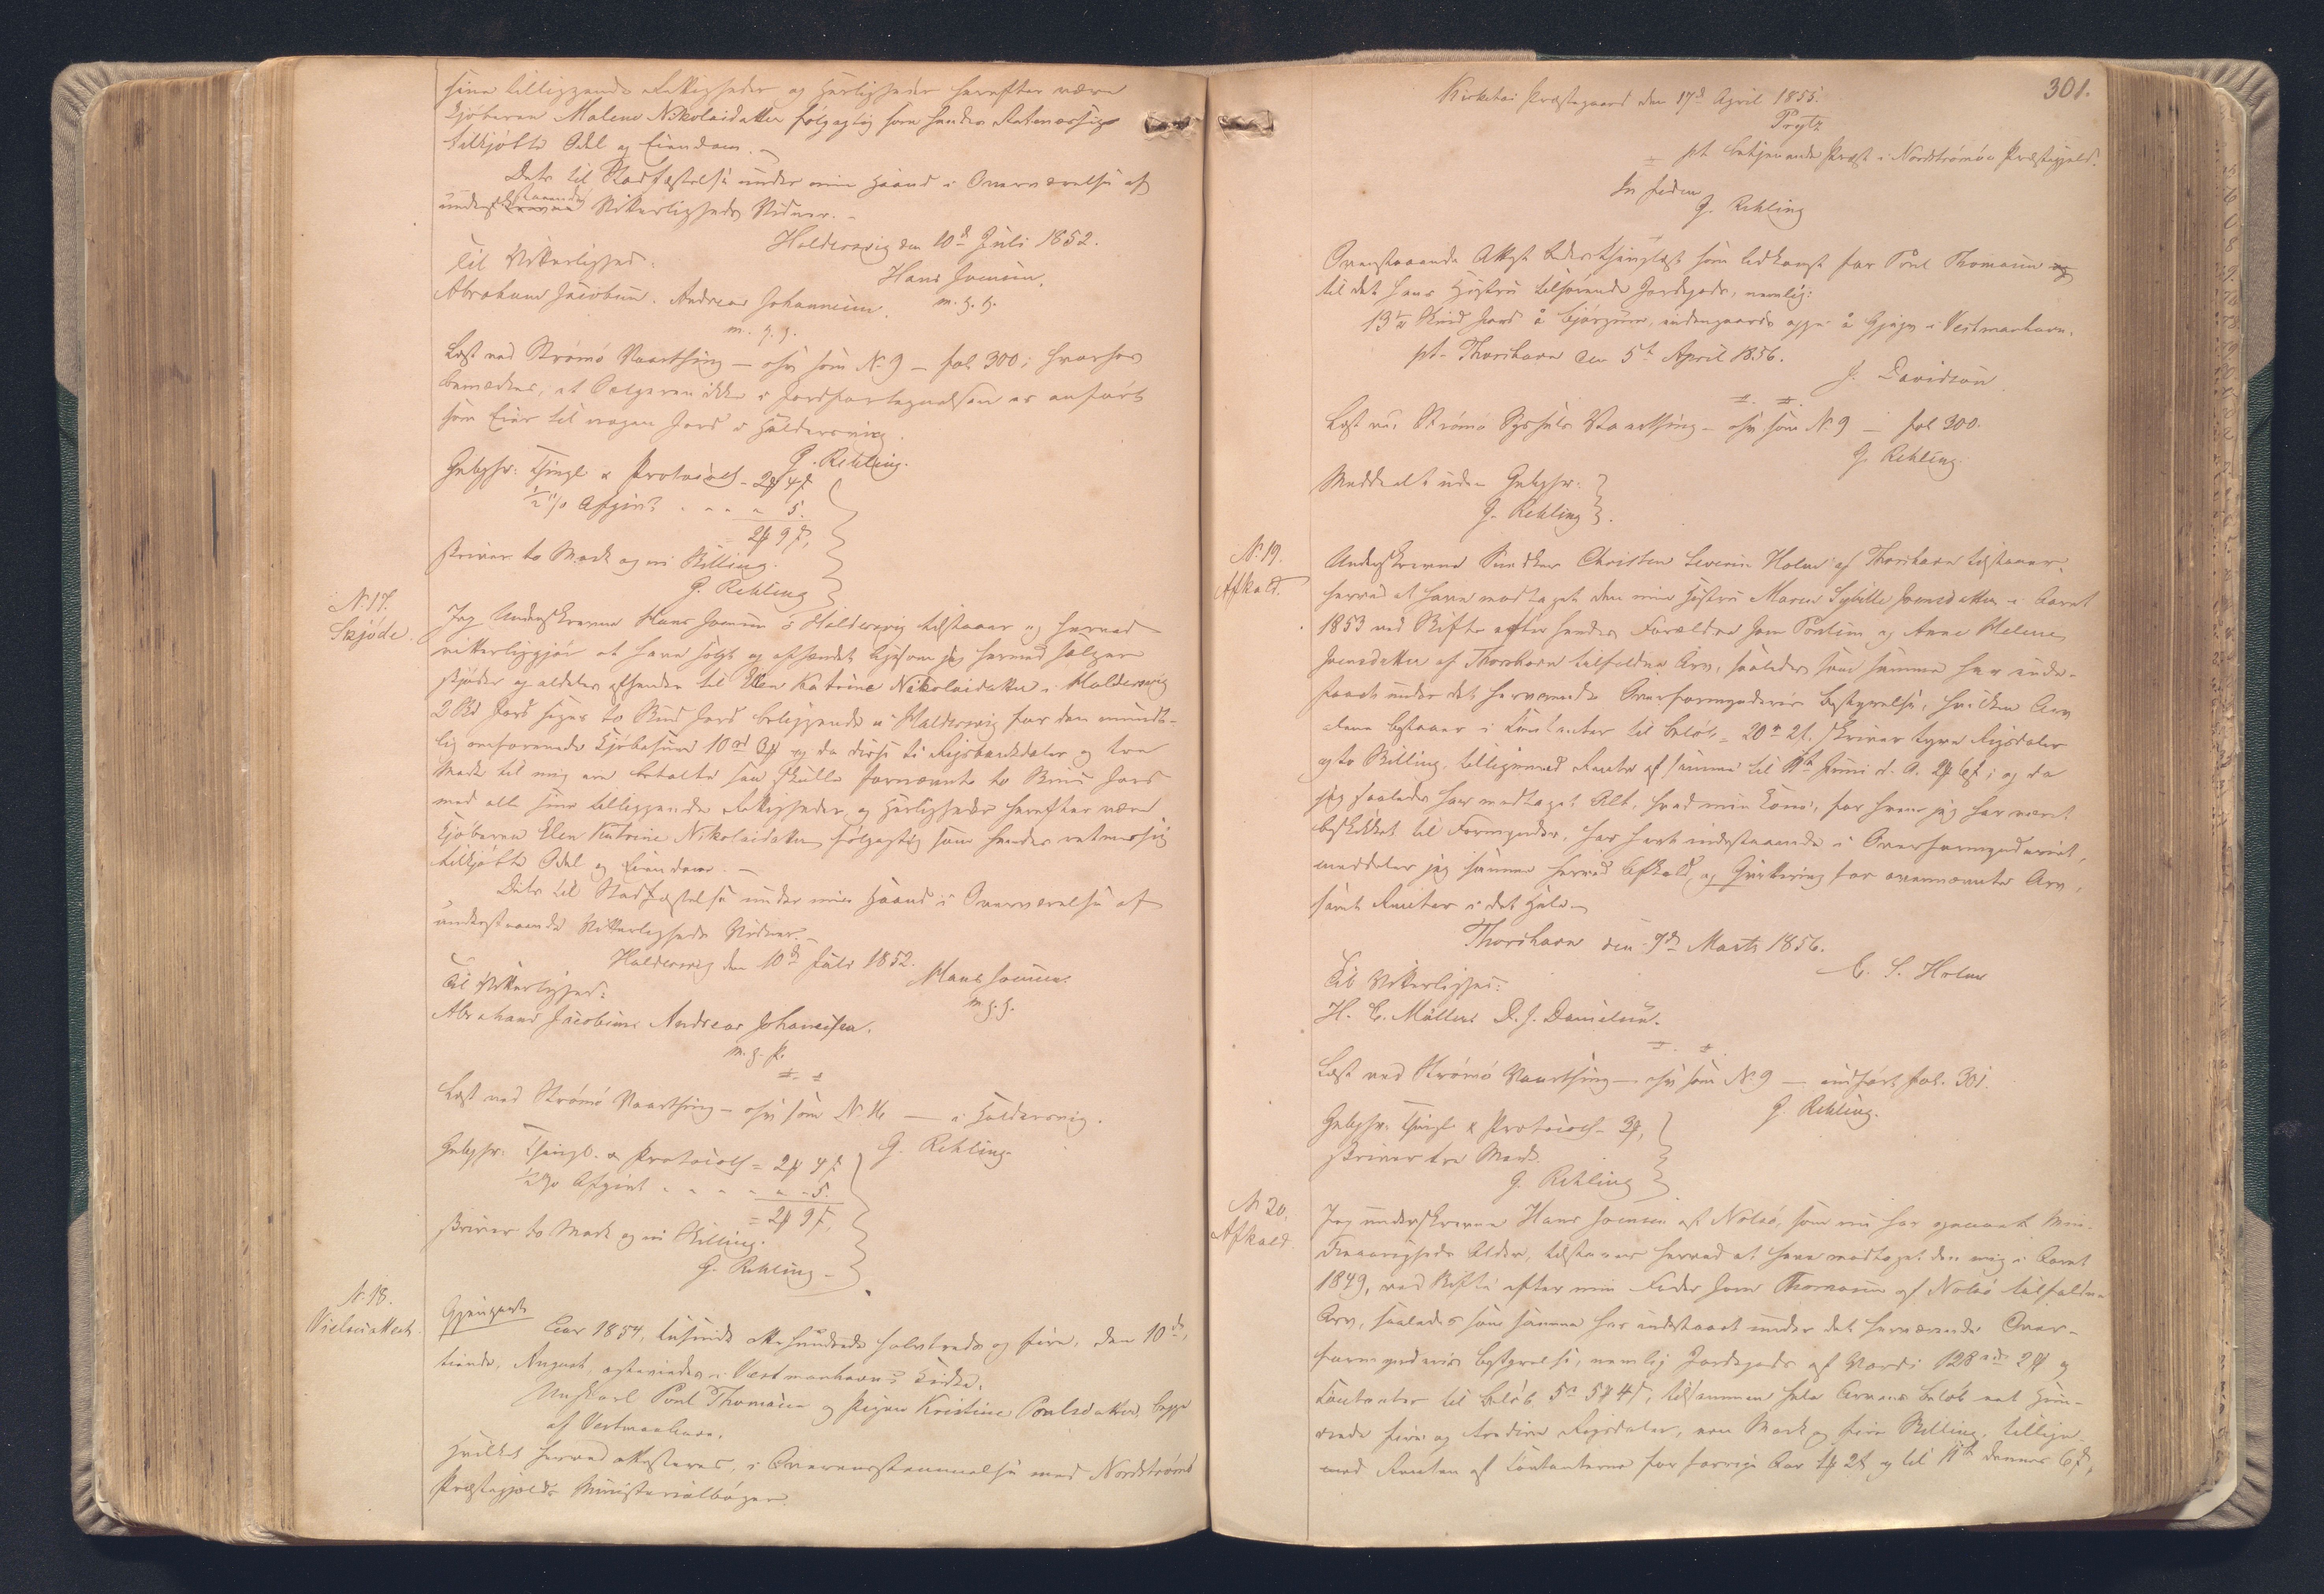 sine tilliggende Rettigheder og Herligheder herefter være
Kjøberen Malene Nikolaidatter følgagtig som hendes Retmæssige
tilkjøbte Odel og Eiendom. –
Dets til Stadfæstelse under min Haand i Overværelse af
understaaende Vitterligheds Vidner. –
Haldersvig den 10d Juli 1852.
Til Vitterlighed:
Hans Joensen.
Abraham Jacobsen. Andreas Johannesen. m. f. P.
m. f. P.
Læst ved Strømø Vaarthing – osv som No 9 – fol. 300; hvorhos
bemærkes, at Sælgeren ikke i Jordfortegnelsen er anført
som Eier til nogen Jord i Haldersvig.
G. Rehling.
Gebyhr: Thingl. & Protocoll = 2 ₻ 4 ß
½ % Afgivt - - - " 5.
2 ₻ 9 ß,
skriver to Mark og ni Skilling.
G. Rehling
No. 17.
Skjøde.
Jeg Underskrevne Hans Joensen i Haldersvig tilstaaer og herved
vitterliggjør at have solgt og afhændet ligesom jeg herved sælger
skjøder og aldeles afhænder til Elen Katrine Nikolaidatter i Haldersvig
2 Skd Jord siger to Skind Jord beliggende i Haldersvig for den mundt-
lig omforenede Kjøbesum 10 rd 3 ₻ og da disse ti Rigsbankdaler og tre
Mark til mig ere betalte saa skulle fornævnte to Skind Jord
med alle sine tilliggende Rettigheder og Herligheder herefter være
Kjøberen Elen Katrine Nikolaidatter følgagtig som hendes retmæssig
tilkjøbte Odel og Eiendom. –
Dets til Stadfæstelse under min Haand i Overværelse af
understaaende Vitterligheds Vidner. –
Haldersvig den 10d Juli 1852.
Til Vitterlighed:
Hans Joensen.
m. f. P.
Abraham Jacobsen. Andreas Johannesen.
m. f. P.
Læst ved Strømø Vaarthing – osv som No 16 – i Haldersvig.
G. Rehling.
Gebyhr: Thingl. & Protocoll = 2 ₻ 4 ß
½ % Afgivt - - - " 5.
= 2 ₻ 9 ß,
skriver to Mark og ni Skilling.
G. Rehling –
No. 18.
Vielsesattest.
Gjenpart
Aar 1854, tusinde otte hundrede halvtreds og fire, den 10de,
tiende, August, ægteviedes i Vestmanhavns Kirke,
Ungkarl Poul Thomasen og Pigen Kristine Poulsdatter, begge
af Vestmanhavn,
hvilket herved attesteres, i Overensstemmelse med Nordstrømø
Præstegjelds Ministerialbøger.
301.
Kirkebøi Præstegaard den 17d April 1855.
Prytz
pt. betjenende Præst i Nordstrømø Præstegjeld.
In fidem
G. Rehling
Ovenstaaende Attest bedes thinglæst som Adkomst for Poul Thomasen
til det hans Hustru tilhørende Jordegods, nemlig:
13½ Skind Jord å Bjørgum, indengaards oppi å Gjógv i Vestmanhavn.
pt. Thorshavn den 5te April 1856.
J. Davidsen
Læst ved Strømø Syssels Vaarthing – osv. som No 9 – fol 300.
G. Rehling.
Meddeelt uden Gebyhr.
G. Rehling
No. 19.
Afkald.
Underskrevne Snedker Christen Severin Holm af Thorshavn tilstaaer
herved at have modtaget den min Hustru Maren Sybille Joensdatter i Aaret
1853 ved Skifte efter hendes Forældre Joen Poulsen og Anne Helene
Joensdatter af Thorshavn tilfaldne Arv, saaledes som samme har inde-
staaet under det herværende Overformynderies Bestyrelse, hvilken Arv
alene bestaaer i Contanter til Beløb = 20 rd 2 ß. skriver tyve Rigsdaler
og to Skilling, tilligemed Renter af samme til 11te Juni d. A. 2 ₻ 6 ß; og da
jeg saaledes har modtaget Alt, hvad min Kone, for hvem jeg har været
beskikket til Formynder, har havt indestaaende i Overformynderiet,
meddeler jeg samme herved Afkald og Qvittering for ovennævnte Arv,
samt Renter i det Hele. –
Thorshavn den 7de Marts 1856.
C. S. Holm
Til Vitterlighed:
H. C. Müller. D. J. Danielsen.
Læst ved Strømø Vaarthing – osv som No 9 – indført fol. 301.
G. Rehling.
Gebyhr. Thingl. & Protocoll = 3 ₻,
skriver tre Mark.
G. Rehling
No. 20.
Afkald.
Jeg underskrevne Hans Joensen af Nolsø, som nu har opnaaet Min-
dreaarigheds Alder, tilstaaer herved at have modtaget den mig i Aaret
1849, ved Skifte efter min Fader Joen Thomasen af Nolsø tilfaldne
Arv, saaledes som samme har indestaaet under det herværende Over-
formynderies Bestyrelse, nemlig Jordegods af Værdi 128 rd 2 ₻ og
Contanter til Beløb 5 rd 5 ₻ 4 ß, tilsammen hele Arvens Beløb eet Hun-
drede fire og tredive Rigsdaler, een Mark og fire Skilling, tillige-
med Renten af Contanterne for forrige Aar 1 ₻ 2 ß og til 11te dennes 6 ß,